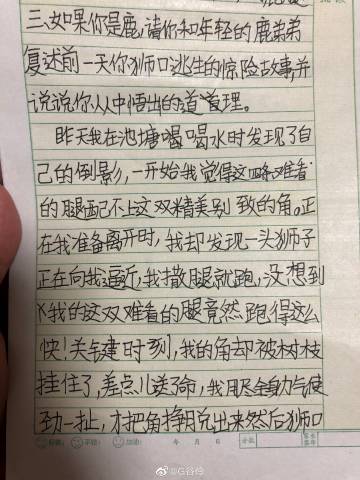 三、如果你是鹿,请你和年轻的鹿弟弟
复述前一天你狮口逃生的惊险故事,并
说说你从中悟出的道理。
昨天我在池塘喝喝水时发现了自
己的倒影,一开始我觉得这四条难看
的腿配不上这双精美别致的角。正
在我准备离开时,我却发现一头狮子
正在向我逼近,我撒腿就跑,没想到
我的这双难看的腿竟然跑得这么
快!关键时刻,我的角却被树枝
挂住了,差点儿送了命,我用尽全身力气使
劲一扯,才把角挣脱出来然后狮口
年 月 日
@G谷伶